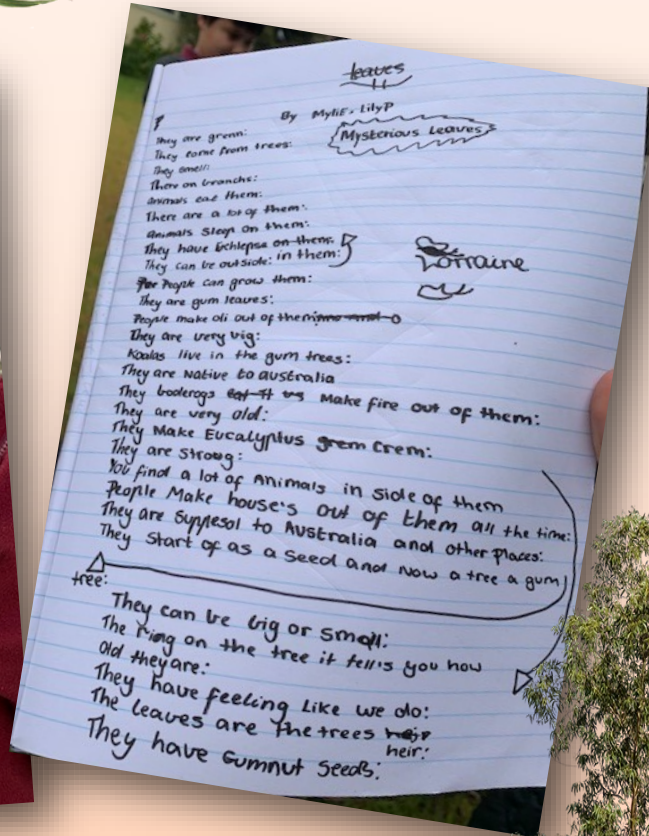 leaves
By Mylie. LilyP
Mysterious Leaves
They are grenn:
They come from trees:
They smell:
There on branchs:
animals eat them:
There are a lot of them:
animals sleep on them:
They have on them.
They can be outside: in them:
Lorraine
People can grow them:
They are gum leaves:
People make oli out of them
They are very big:
Koalas live in the gum trees:
They are Native to australia
They Make fire out of them:
They are very old:
They Make Eucalyptus Crem:
They are Stroug:
You find a lot of Animals in side of them
People Make house's out of them all the time:
They are to Australia and other Places:
They Start of as a Seed and Now a tree a gum
tree:
They can be big or small:
The ring on the tree it tell's you how
old they are:
They have feeling Like we do:
The Leaves are the trees heir
heir:
They have Gumnut Seeds: